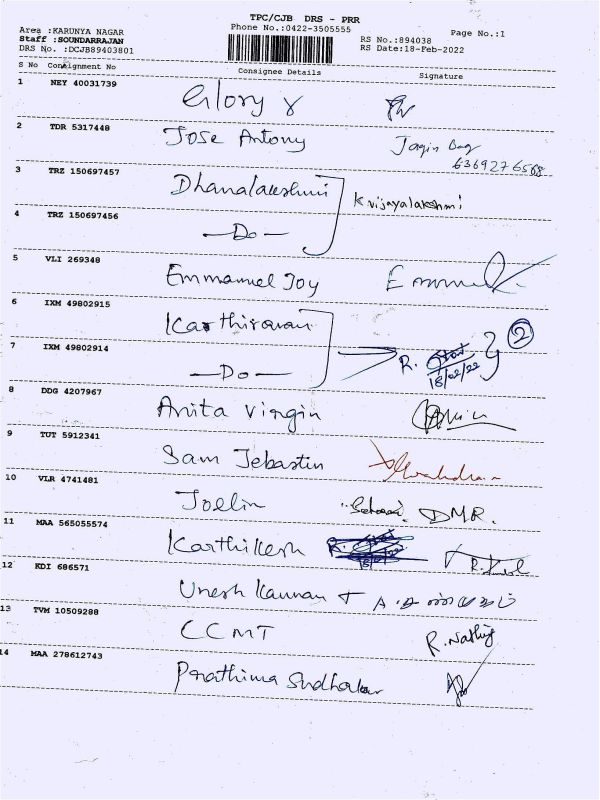 TPC/CJB DRS - PRR
Area :KARUNYA NAGAR Phone No.:0422-3505555 Page No.:1
Staff :SOUNDARRAJAN RS No.:894038
DRS No. :DCJB89403801 RS Date:18-Feb-2022
S No Consignment No Consignee Details Signature
1 NEY 40031739
Glory
2 TDR 5317448
Jose Antony
6369276568
3 TRZ 150697457
Dhanalakshmi K vijayalakshmi
4 TRZ 150697456
—Do—
5 VLI 269348
Emmanuel Joy
6 IXM 49802915
Karthiravan
7 IXM 49802914
—Do— R. 2
18/02/22
8 DDG 4207967
Anita Virgin
9 TUT 5912341
Sam Jebastin
10 VLR 4741481
Joellin DMR.
11 MAA 565055574
Karthikesh
12 KDI 686571
Unesh Kannan
13 TVM 10509288
CCMT
14 MAA 278612743
Prathima Sudhakar